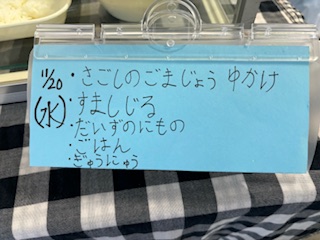 11/20 ・さごしのごまじょうゆかけ
(水) ・すましじる
・だいずのにもの
・ごはん
・ぎゅうにゅう